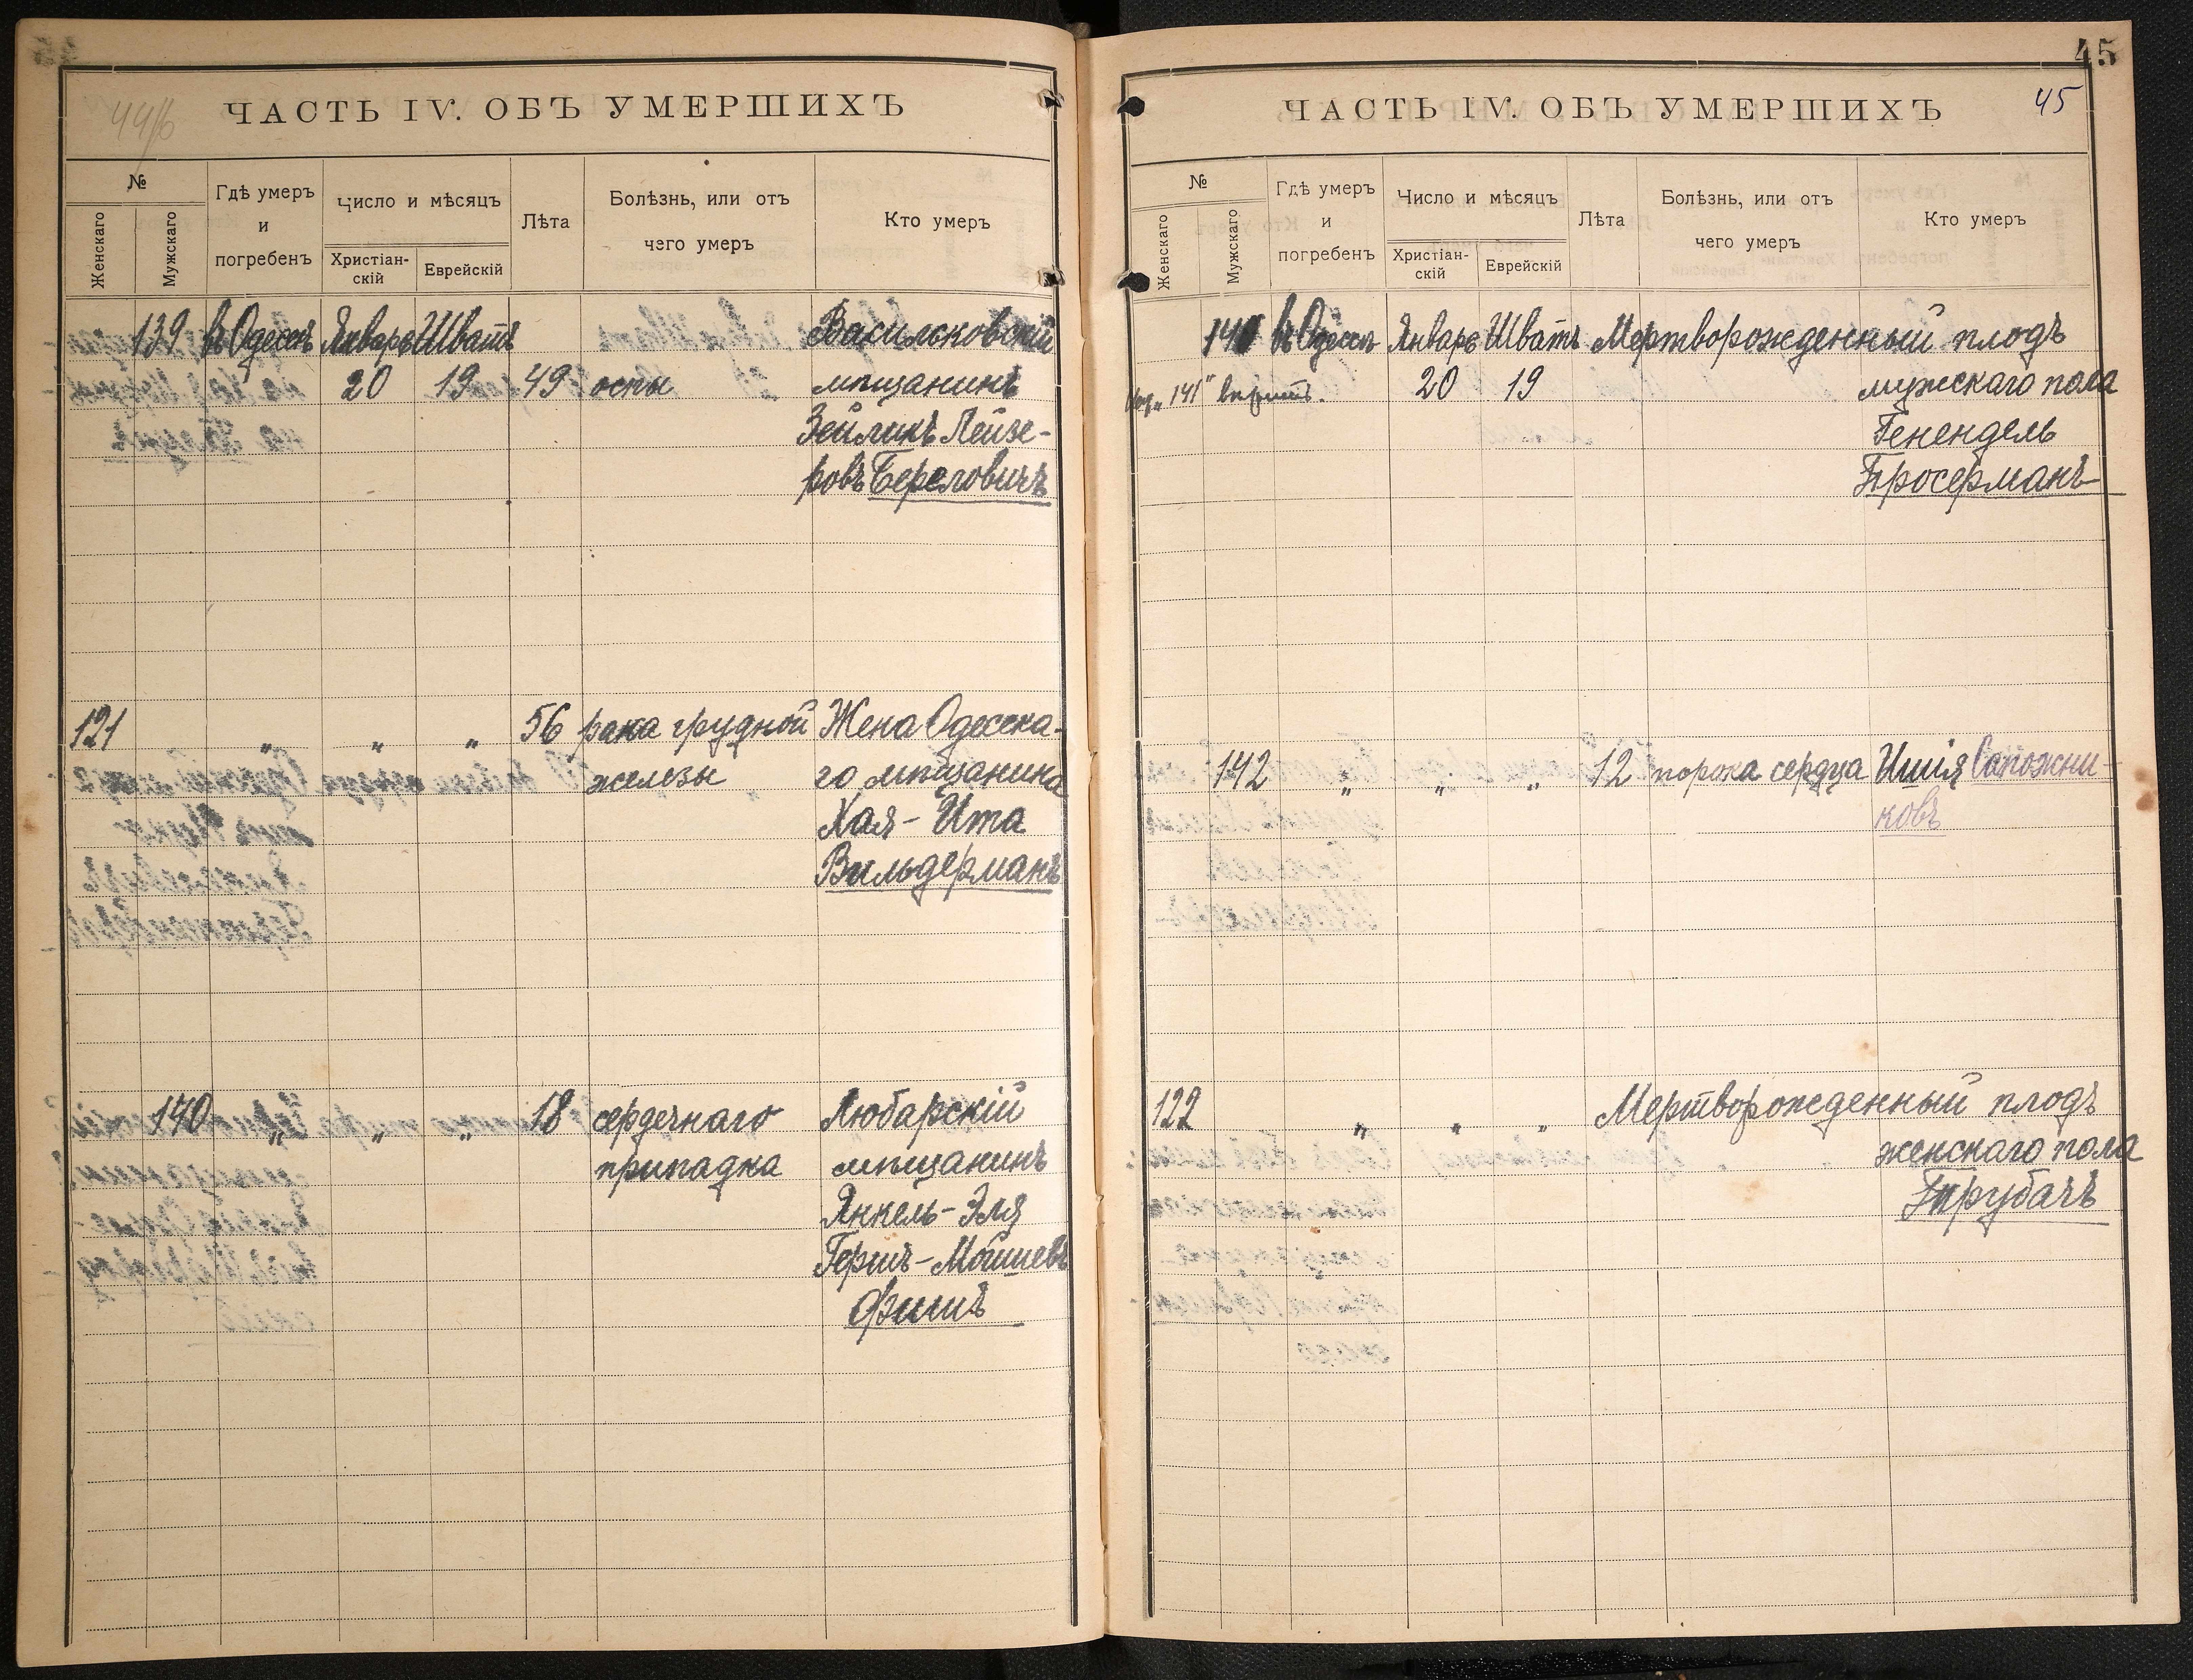 44об
ЧАСТЬ IV. ОБЪ УМЕРШИХЪ
№
Женскаго
Мужскаго
Гдѣ умеръ
и
погребенъ
Число и мѣсяцъ
Христіан-
скій
Еврейскій
Лѣта
Болѣзнь, или отъ
чего умеръ
Кто умеръ
139 въ Одессѣ Январь Шватъ Васильковскій
20 19 49 оспы мѣщанинъ
Зейликъ Лейзе-
ровъ Береловичъ
121 „ „ „ 56 рака грудной Жена Одесска-
железы го мѣщанина
Хая-Ита
Вильдерманъ
140 „ „ „ 18 сердечнаго Любарскій
припадка мѣщанинъ
Янкель-Эля
Гершъ-Мошиевъ
Фишъ
45
ЧАСТЬ IV. ОБЪ УМЕРШИХЪ 45
№
Женскаго
Мужскаго
Гдѣ умеръ
и
погребенъ
Число и мѣсяцъ
Христіан-
скій
Еврейскій
Лѣта
Болѣзнь, или отъ
чего умеръ
Кто умеръ
141 въ Одессѣ Январь Шватъ Мертворожденный плодъ
„141" 20 19 мужскаго пола
Генендель
Бросерманъ
142 „ „ „ 12 порока сердца Ишія Сапожни-
ковъ
122 „ „ „ Мертворожденный плодъ
женскаго пола
Трубачъ